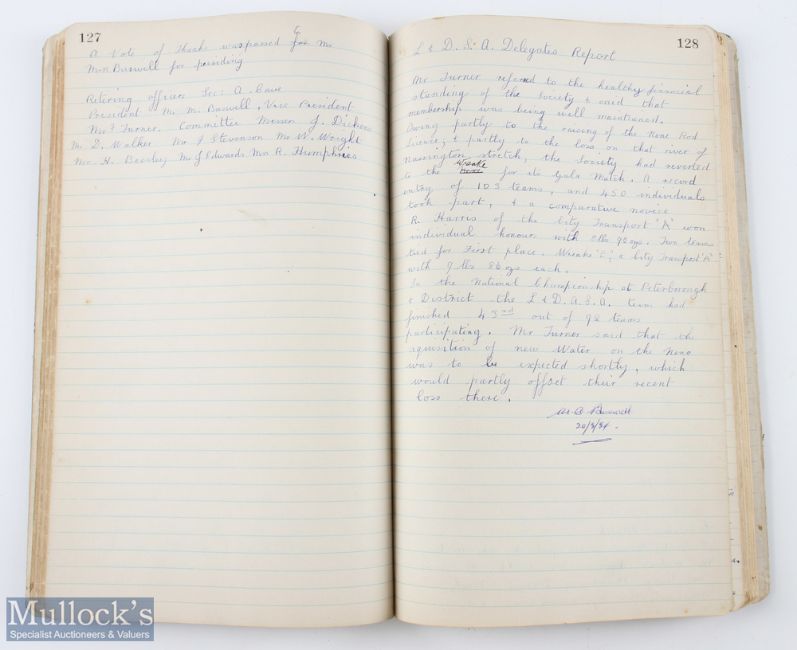 127
A Vote of Thanks was passed to Mr
Mr Buswell for presiding
Retiring officers Sec: A. Bave
President Mr M. Buswell, Vice President
Mr F Turner. Committee Messrs J. Dickens
Mr. D. Walker Mr J Stevenson Mr W. Wright
Mr. H. Beesley Mr J Edwards Mr R. Humphries
128
L & D. S. A. Delegates Report
Mr Turner refered to the healthy financial
standing of the Society & said that
membership was being well maintained.
Owing partly to the raising of the Nene Rod
Licence, & partly to the loss on that river of
Nassington stretch, the Society had reverted
to the Wreake for its Gala Match. A record
entry of 103 teams, and 450 individuals
took part, & a comparative novice
R. Harris of the City Transport "A" won
individual honours with 9½ ozs. Two teams
tied for First place. Wreake & City Transport "A"
with 9 lbs 8½ ozs each.
In the National Championship at Peterborough
& District the L & D. A. S. A. team had
finished 43rd out of 92 teams
participating. Mr Turner said that the
aquisition of new Water on the Nene
was to be expected shortly, which
would partly offset their recent
loss there.
Buswell
20/3/54.
Mullock's
Specialist Auctioneers & Valuers